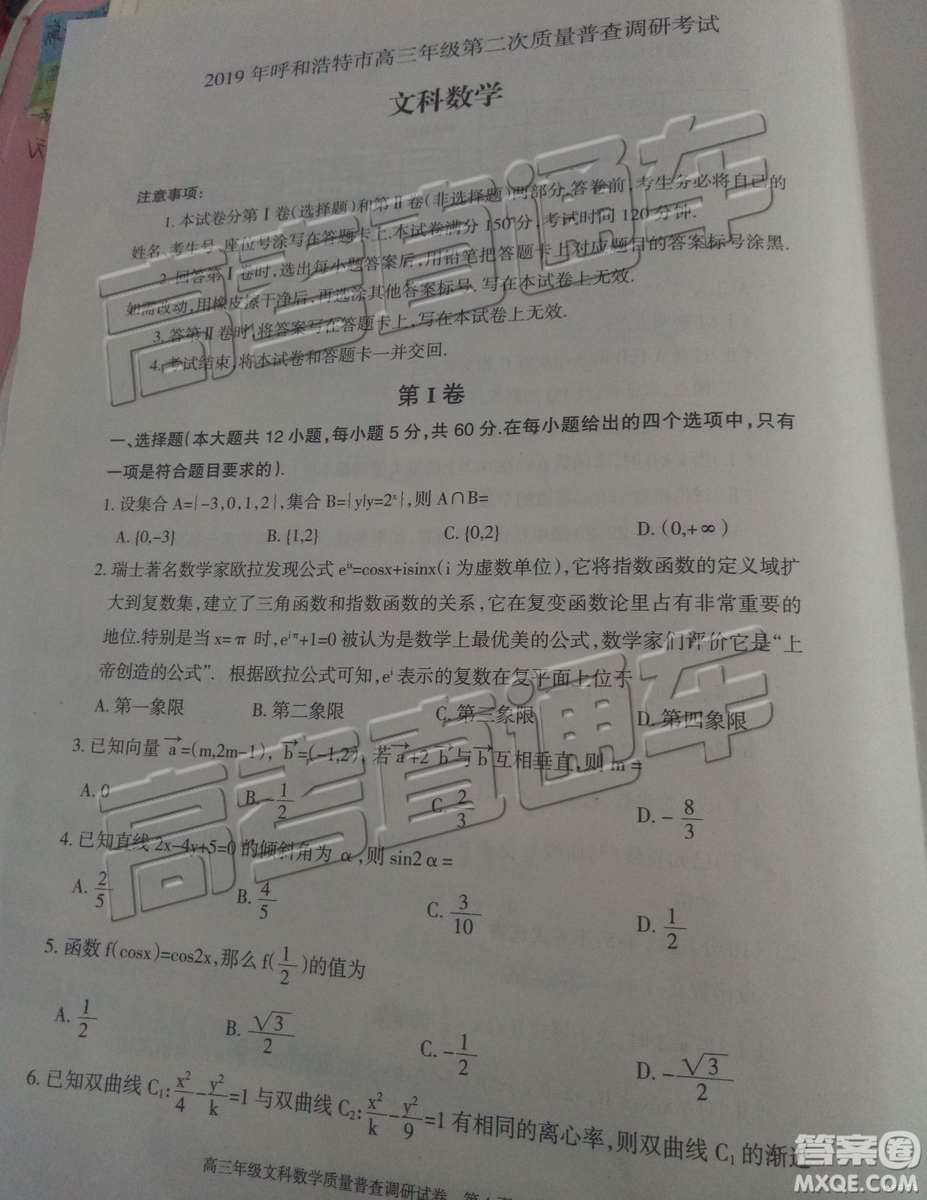 2019年呼和浩特市高三年级第二次质量普查调研考试
文科数学
注意事项:
1.本试卷分第Ⅰ卷(选择题)和第Ⅱ卷(非选择题)两部分.答卷前,考生务必将自己的
姓名、考生号、座位号涂写在答题卡上.本试卷满分150分,考试时间120分钟.
2.回答第Ⅰ卷时,选出每小题答案后,用铅笔把答题卡上对应题目的答案标号涂黑.
如需改动,用橡皮擦干净后,再选涂其他答案标号.写在本试卷上无效.
3.答第Ⅱ卷时,将答案写在答题卡上,写在本试卷上无效.
4.考试结束,将本试卷和答题卡一并交回.
第Ⅰ卷
一、选择题(本大题共12小题,每小题5分,共60分.在每小题给出的四个选项中,只有
一项是符合题目要求的).
1.设集合A={-3,0,1,2},集合B={y|y=2ˣ},则A∩B=
A.{0,-3} B.{1,2} C.{0,2} D.(0,+∞)
2.瑞士著名数学家欧拉发现公式eⁱˣ=cosx+isinx(i为虚数单位),它将指数函数的定义域扩
大到复数集,建立了三角函数和指数函数的关系,它在复变函数论里占有非常重要的
地位.特别是当x=π时,e^{iπ}+1=0被认为是数学上最优美的公式,数学家们评价它是“上
帝创造的公式”. 根据欧拉公式可知,eⁱ表示的复数在复平面上位于
A.第一象限 B.第二象限 C.第三象限 D.第四象限
3.已知向量 a→=(m,2m-1), b→=(-1,2),若a→+2b→与b→互相垂直,则m=
A.0 B.-1/2 C.2/3 D.-8/3
4.已知直线2x-4y+5=0的倾斜角为α,则sin2α=
A.2/5 B.4/5 C.3/10 D.1/2
5.函数f(cosx)=cos2x,那么f(1/2)的值为
A.1/2 B.√3/2 C.-1/2 D.-√3/2
6.已知双曲线C₁:x²/4-y²/k=1与双曲线C₂:x²/k-y²/9=1有相同的离心率,则双曲线C₁的渐近
高三年级文科数学质量普查调研试卷 第1页
高考直通车
高考直通车
答案圈